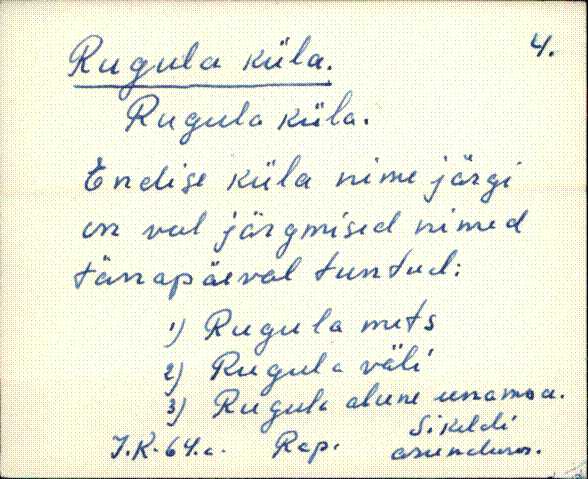 4.
Rugula küla.
Rugula küla.
Endise küla nime järgi
on val järgmised nimed
tänapäeval tuntud:
1) Rugula mets
2) Rugula väli
3) Rugula alune
J.K. 64.a. Rap. Sikeldi
asunduses.